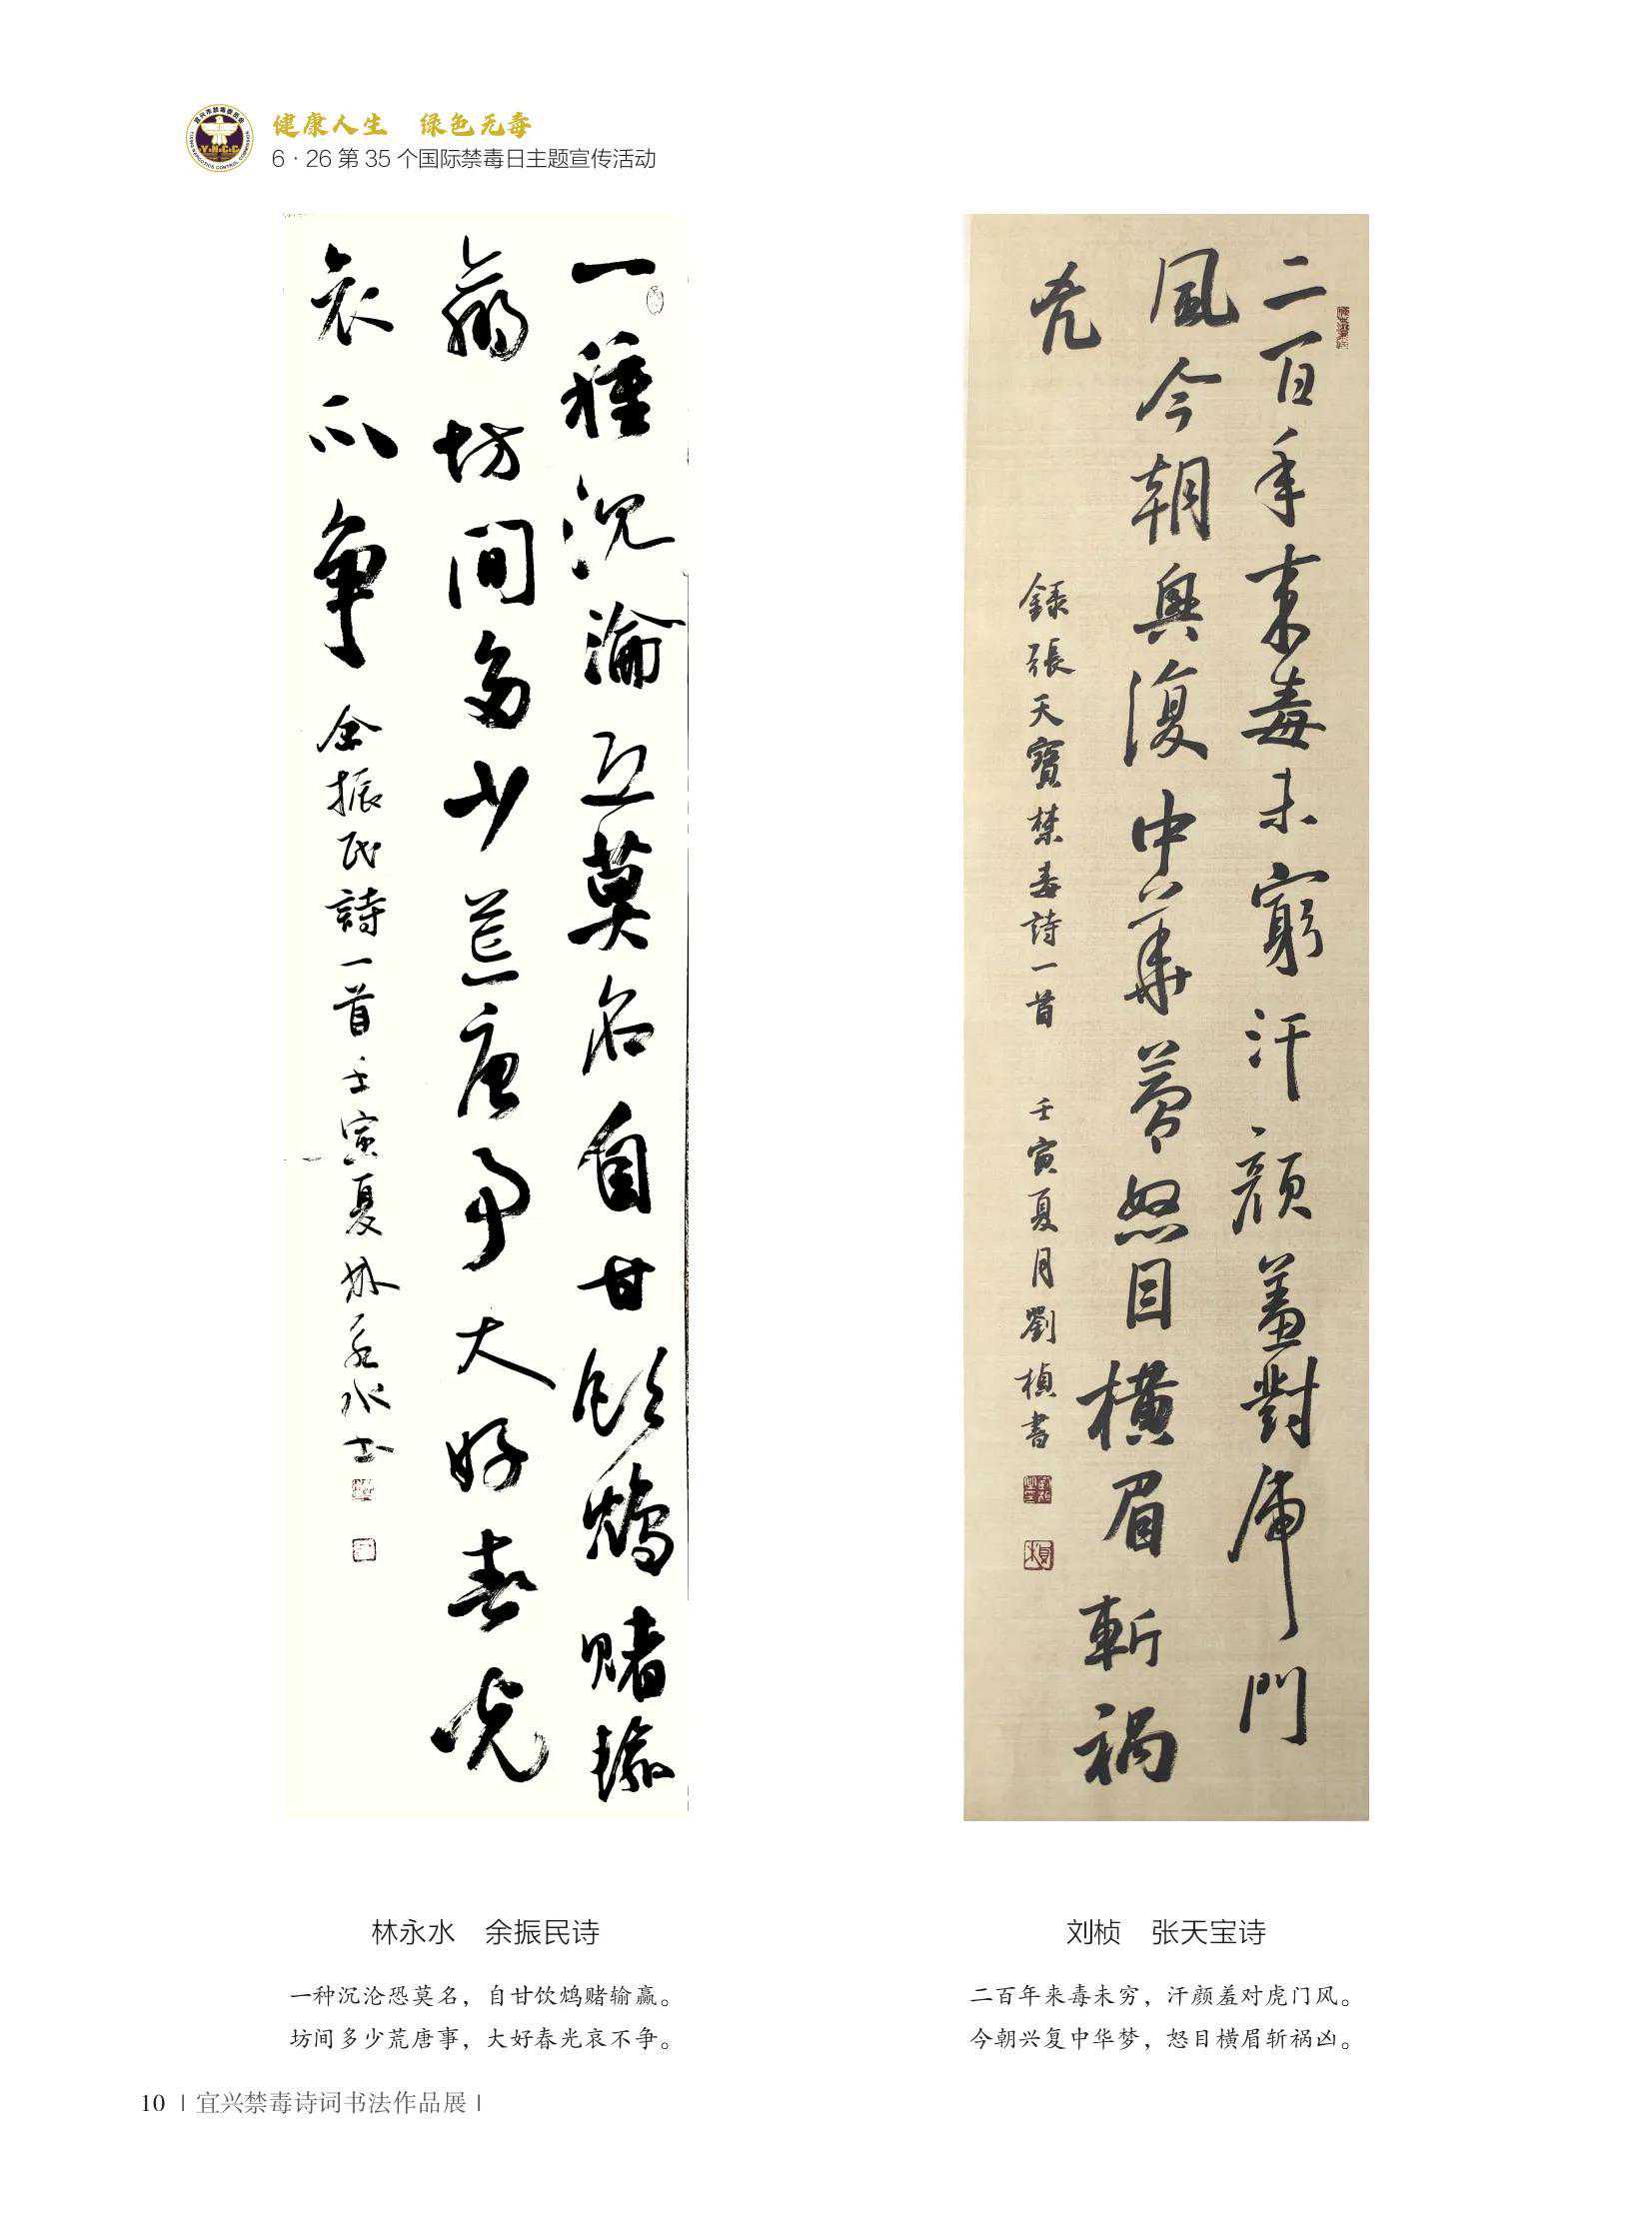 健康人生 绿色无毒
6·26 第 35 个国际禁毒日主题宣传活动
一種沉淪恐莫名自甘飲鴆賭輸
贏坊间多少荒唐事大好春光
哀不争
余振民詩一首壬寅夏林永水书
二百年来毒未窮汗顔羞對虎門
風今朝興復中華夢怒目橫眉斬祸
凶
錄張天寶禁毒詩一首 壬寅夏月劉楨書
林永水 余振民诗
一种沉沦恐莫名，自甘饮鸩赌输赢。
坊间多少荒唐事，大好春光哀不争。
刘桢 张天宝诗
二百年来毒未穷，汗颜羞对虎门风。
今朝兴复中华梦，怒目横眉斩祸凶。
10 | 宜兴禁毒诗词书法作品展 |